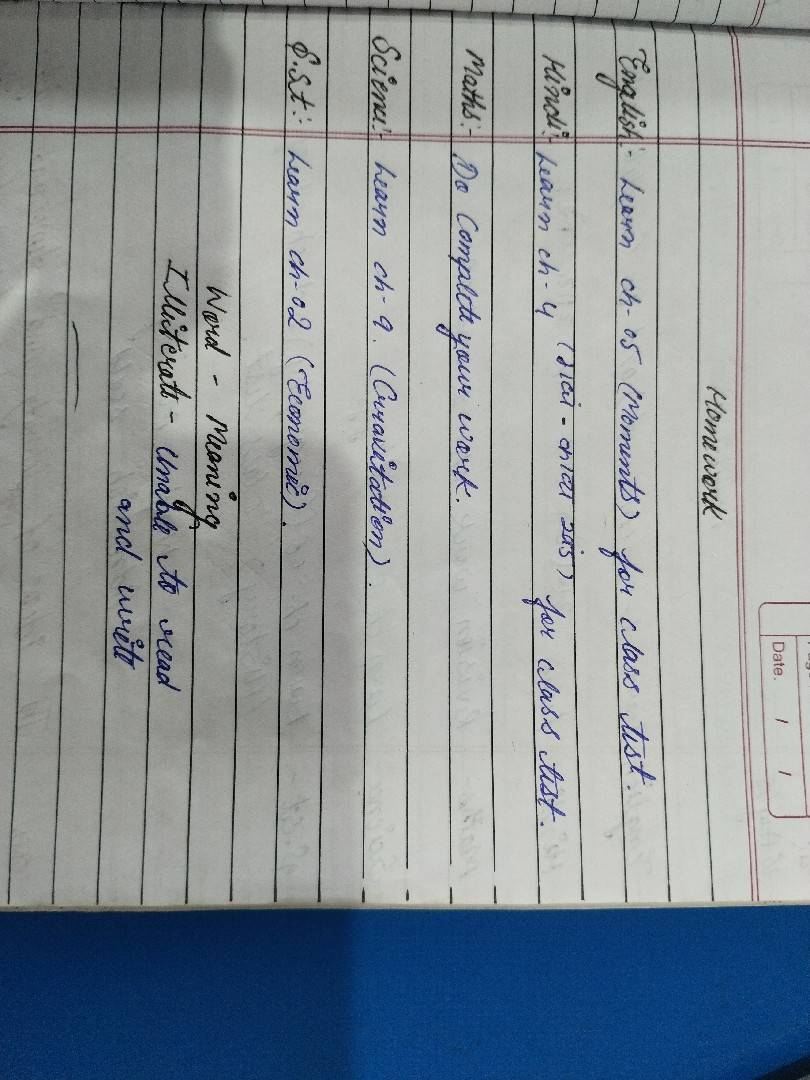 Date. / /
Home work
English:- Learn ch-05 (Moments) for class test.
Hindi:- Learn ch-4 for class test.
Maths:- Do complete your work.
Science:- Learn ch-9. (Gravitation).
S.St:- Learn ch-02 (Economic).
Word - Meaning
Illiterate - Unable to read
and write